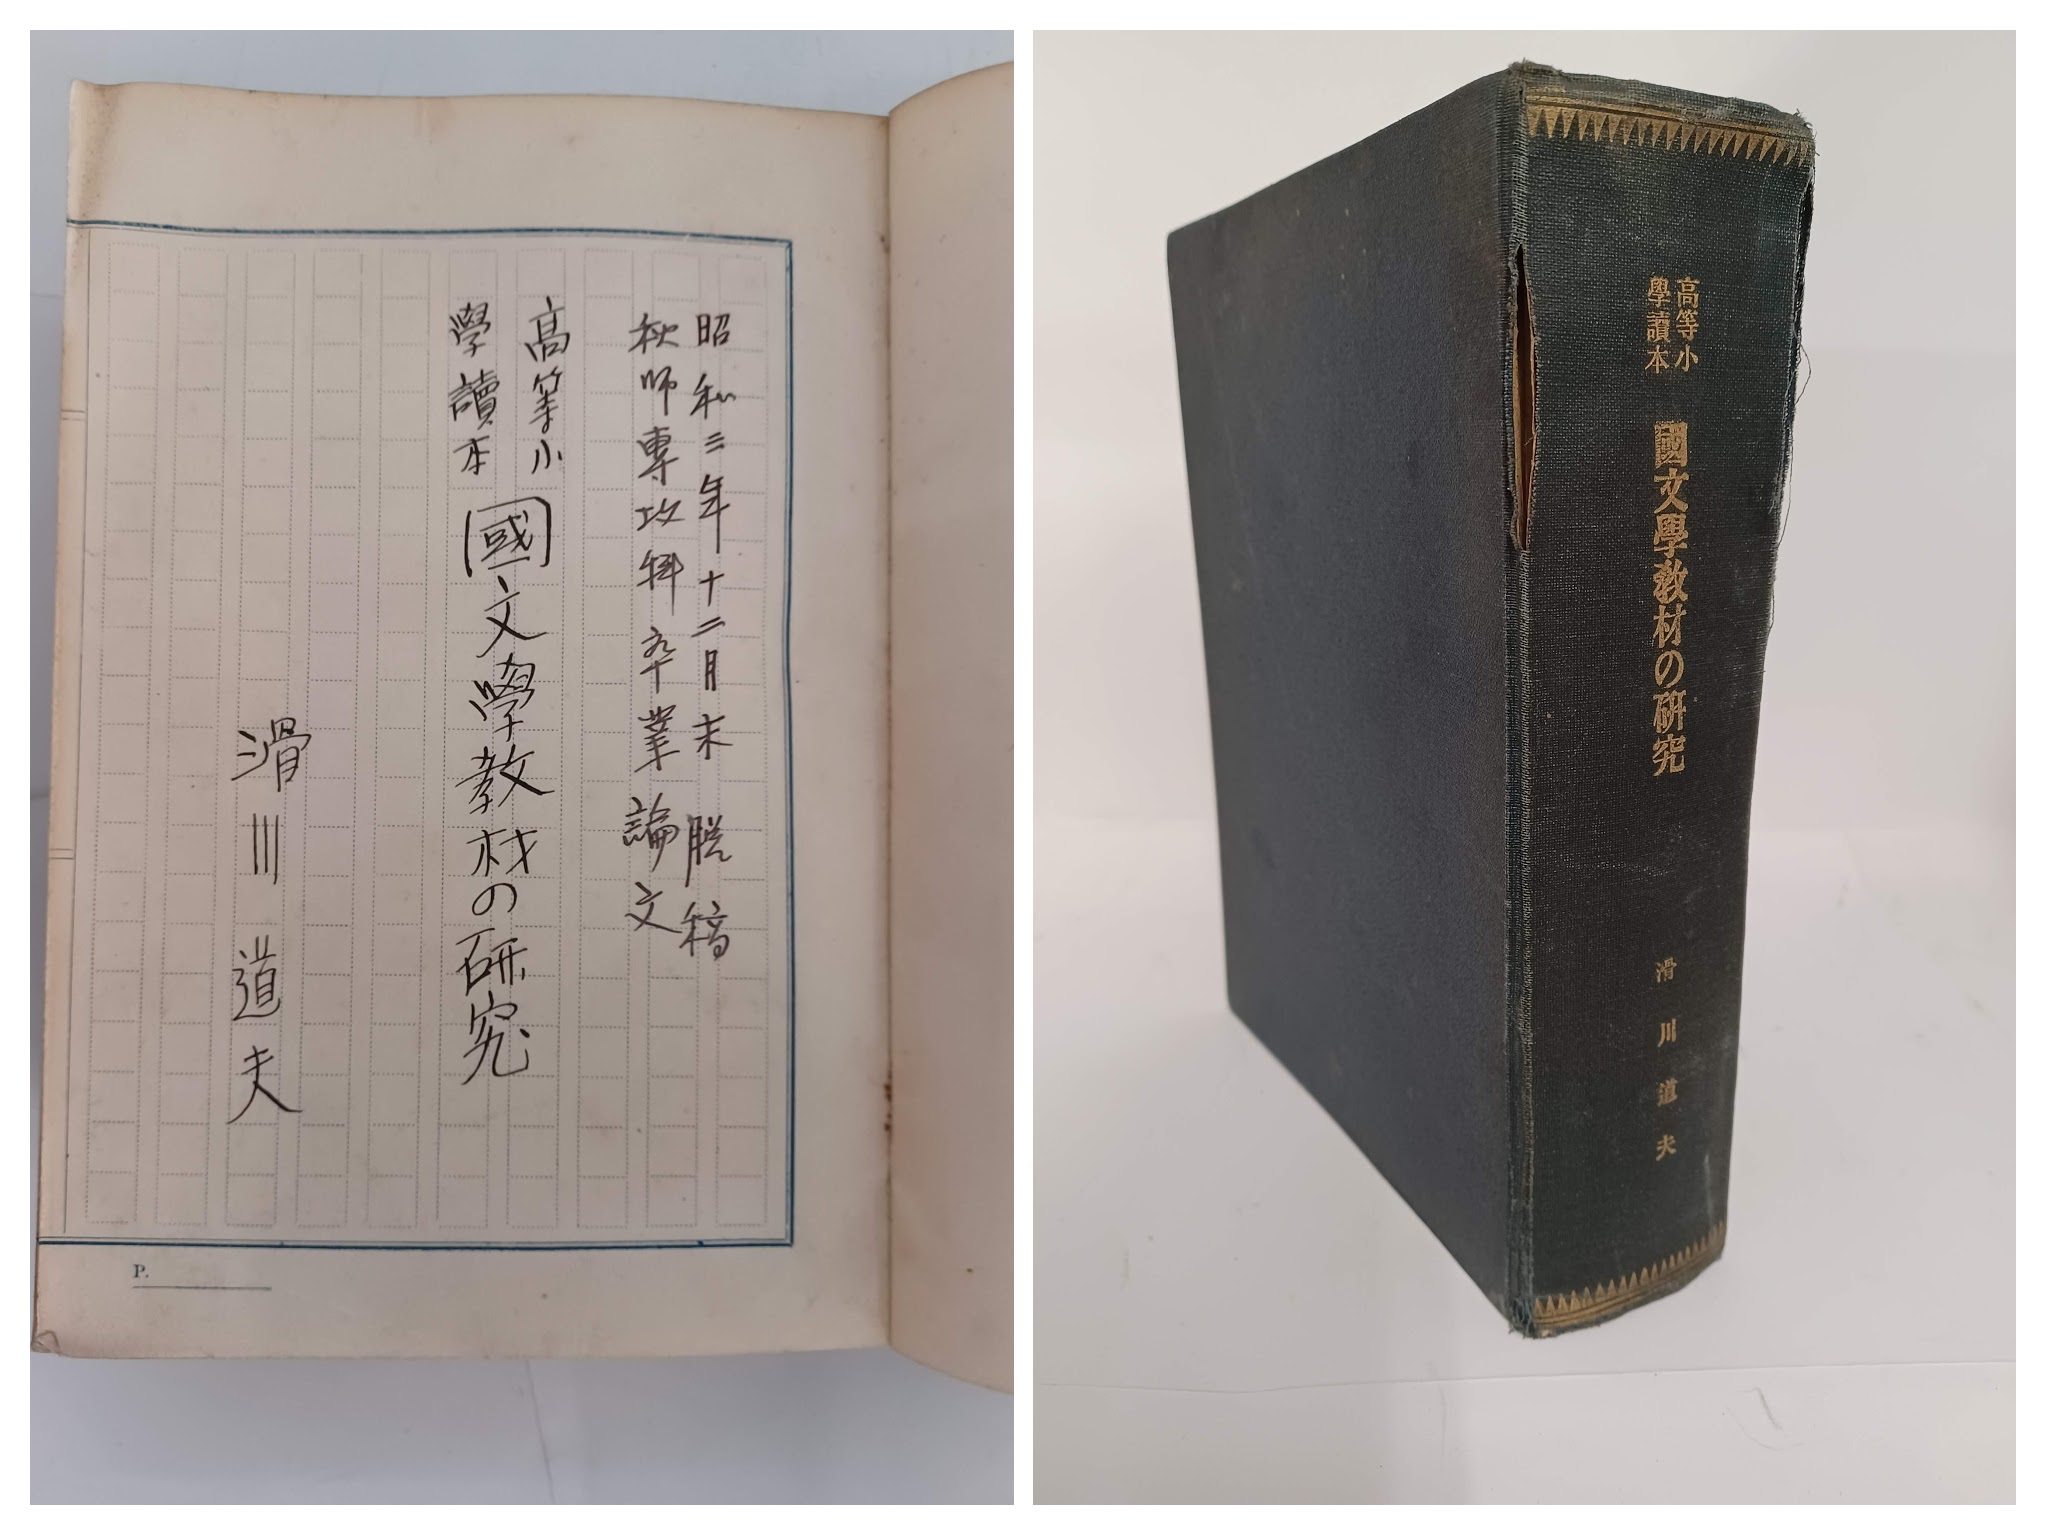 昭和三年十二月末脱稿
秋師專攻科卒業論文
高等小
學讀本
國文學教材の研究
滑川道夫
P.
高等小
學讀本
國文學教材の研究
滑川道夫